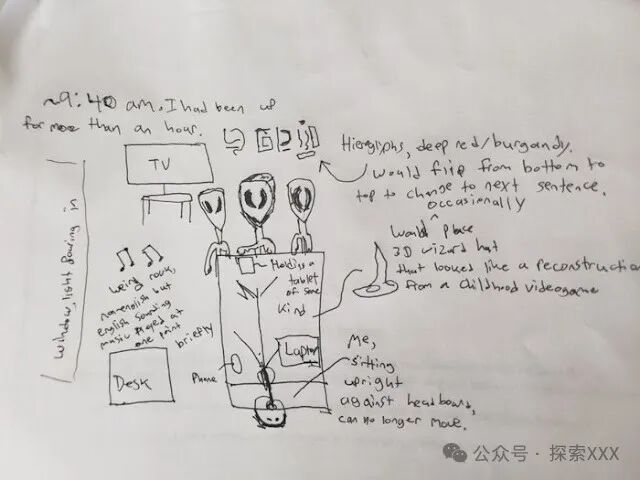 ~9:40 am. I had been up
for more than an hour.
TV
Hieroglyphs, deep red/burgandy.
Would flip from bottom to
top to change to next sentence.
occasionally
Would place
3D wizard hat
that looked like a reconstruction
from a childhood videogame
window, light pouring in
Holding a
tablet
of some
kind
rock,
nonenglish but
english sounding
music played at
one point
briefly
Desk
Phone
Laptop
Me,
sitting
upright
against headboard,
can no longer move.
公众号 · 探索XXX